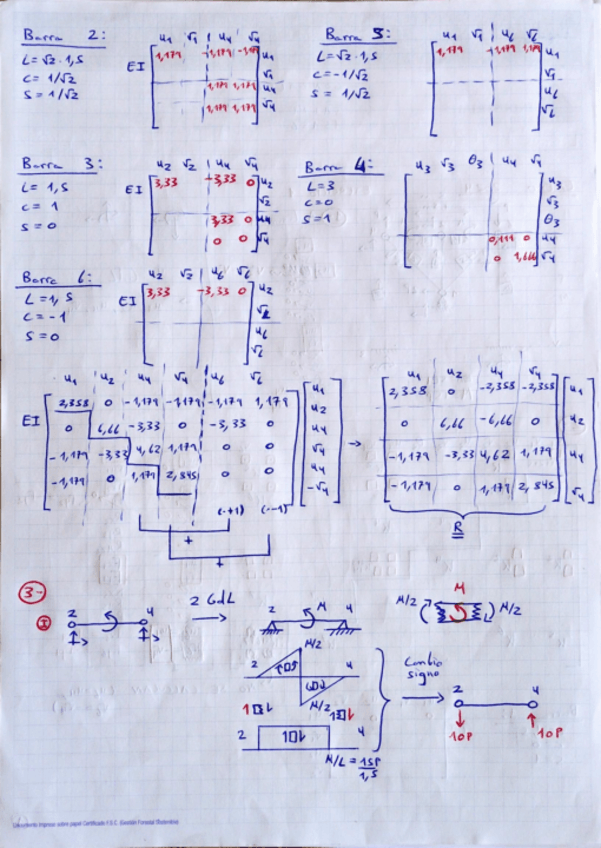 Barra 2:
L=√2·1,5
c=1/√2
s=1/√2
EI
u1 v1 u4 v4
1,179 -1,179 -1,179 u1
v1
1,179 1,179 u4
1,179 1,179 v4
Barra 5:
L=√2·1,5
c=-1/√2
s=1/√2
u1 v1 u6 v6
1,179 -1,179 1,179 u1
v1
u6
v6
Barra 3:
L=1,5
c=1
s=0
EI
u2 v2 u4 v4
3,33 -3,33 0 u2
v2
3,33 0 u4
0 0 v4
Barra 4:
L=3
c=0
s=1
u3 v3 θ3 u4 v4
u3
v3
θ3
0,111 0 u4
0 1,666 v4
Barra 6:
L=1,5
c=-1
s=0
EI
u2 v2 u6 v6
3,33 -3,33 0 u2
v2
u6
v6
u1 u2 u4 v4 u6 v6
EI
2,358 0 -1,179 -1,179 -1,179 1,179 u1
0 6,66 -3,33 0 -3,33 0 u2
-1,179 -3,33 4,62 1,179 0 0 u4
-1,179 0 1,179 2,845 0 0 v4
u4
-v4
(·+1) (·-1)
+
+
→
u1 u2 u4 v4
2,358 0 -2,358 -2,358 u1
0 6,66 -6,66 0 u2
-1,179 -3,33 4,62 1,179 u4
-1,179 0 1,179 2,845 v4
R
3-
I
2 4
2 GdL
2 M 4
M/2 M M/2
M/2
2 4
M/2
2 4
M/L = 15P/1,5
Cambio
signo
2 4
10P 10P